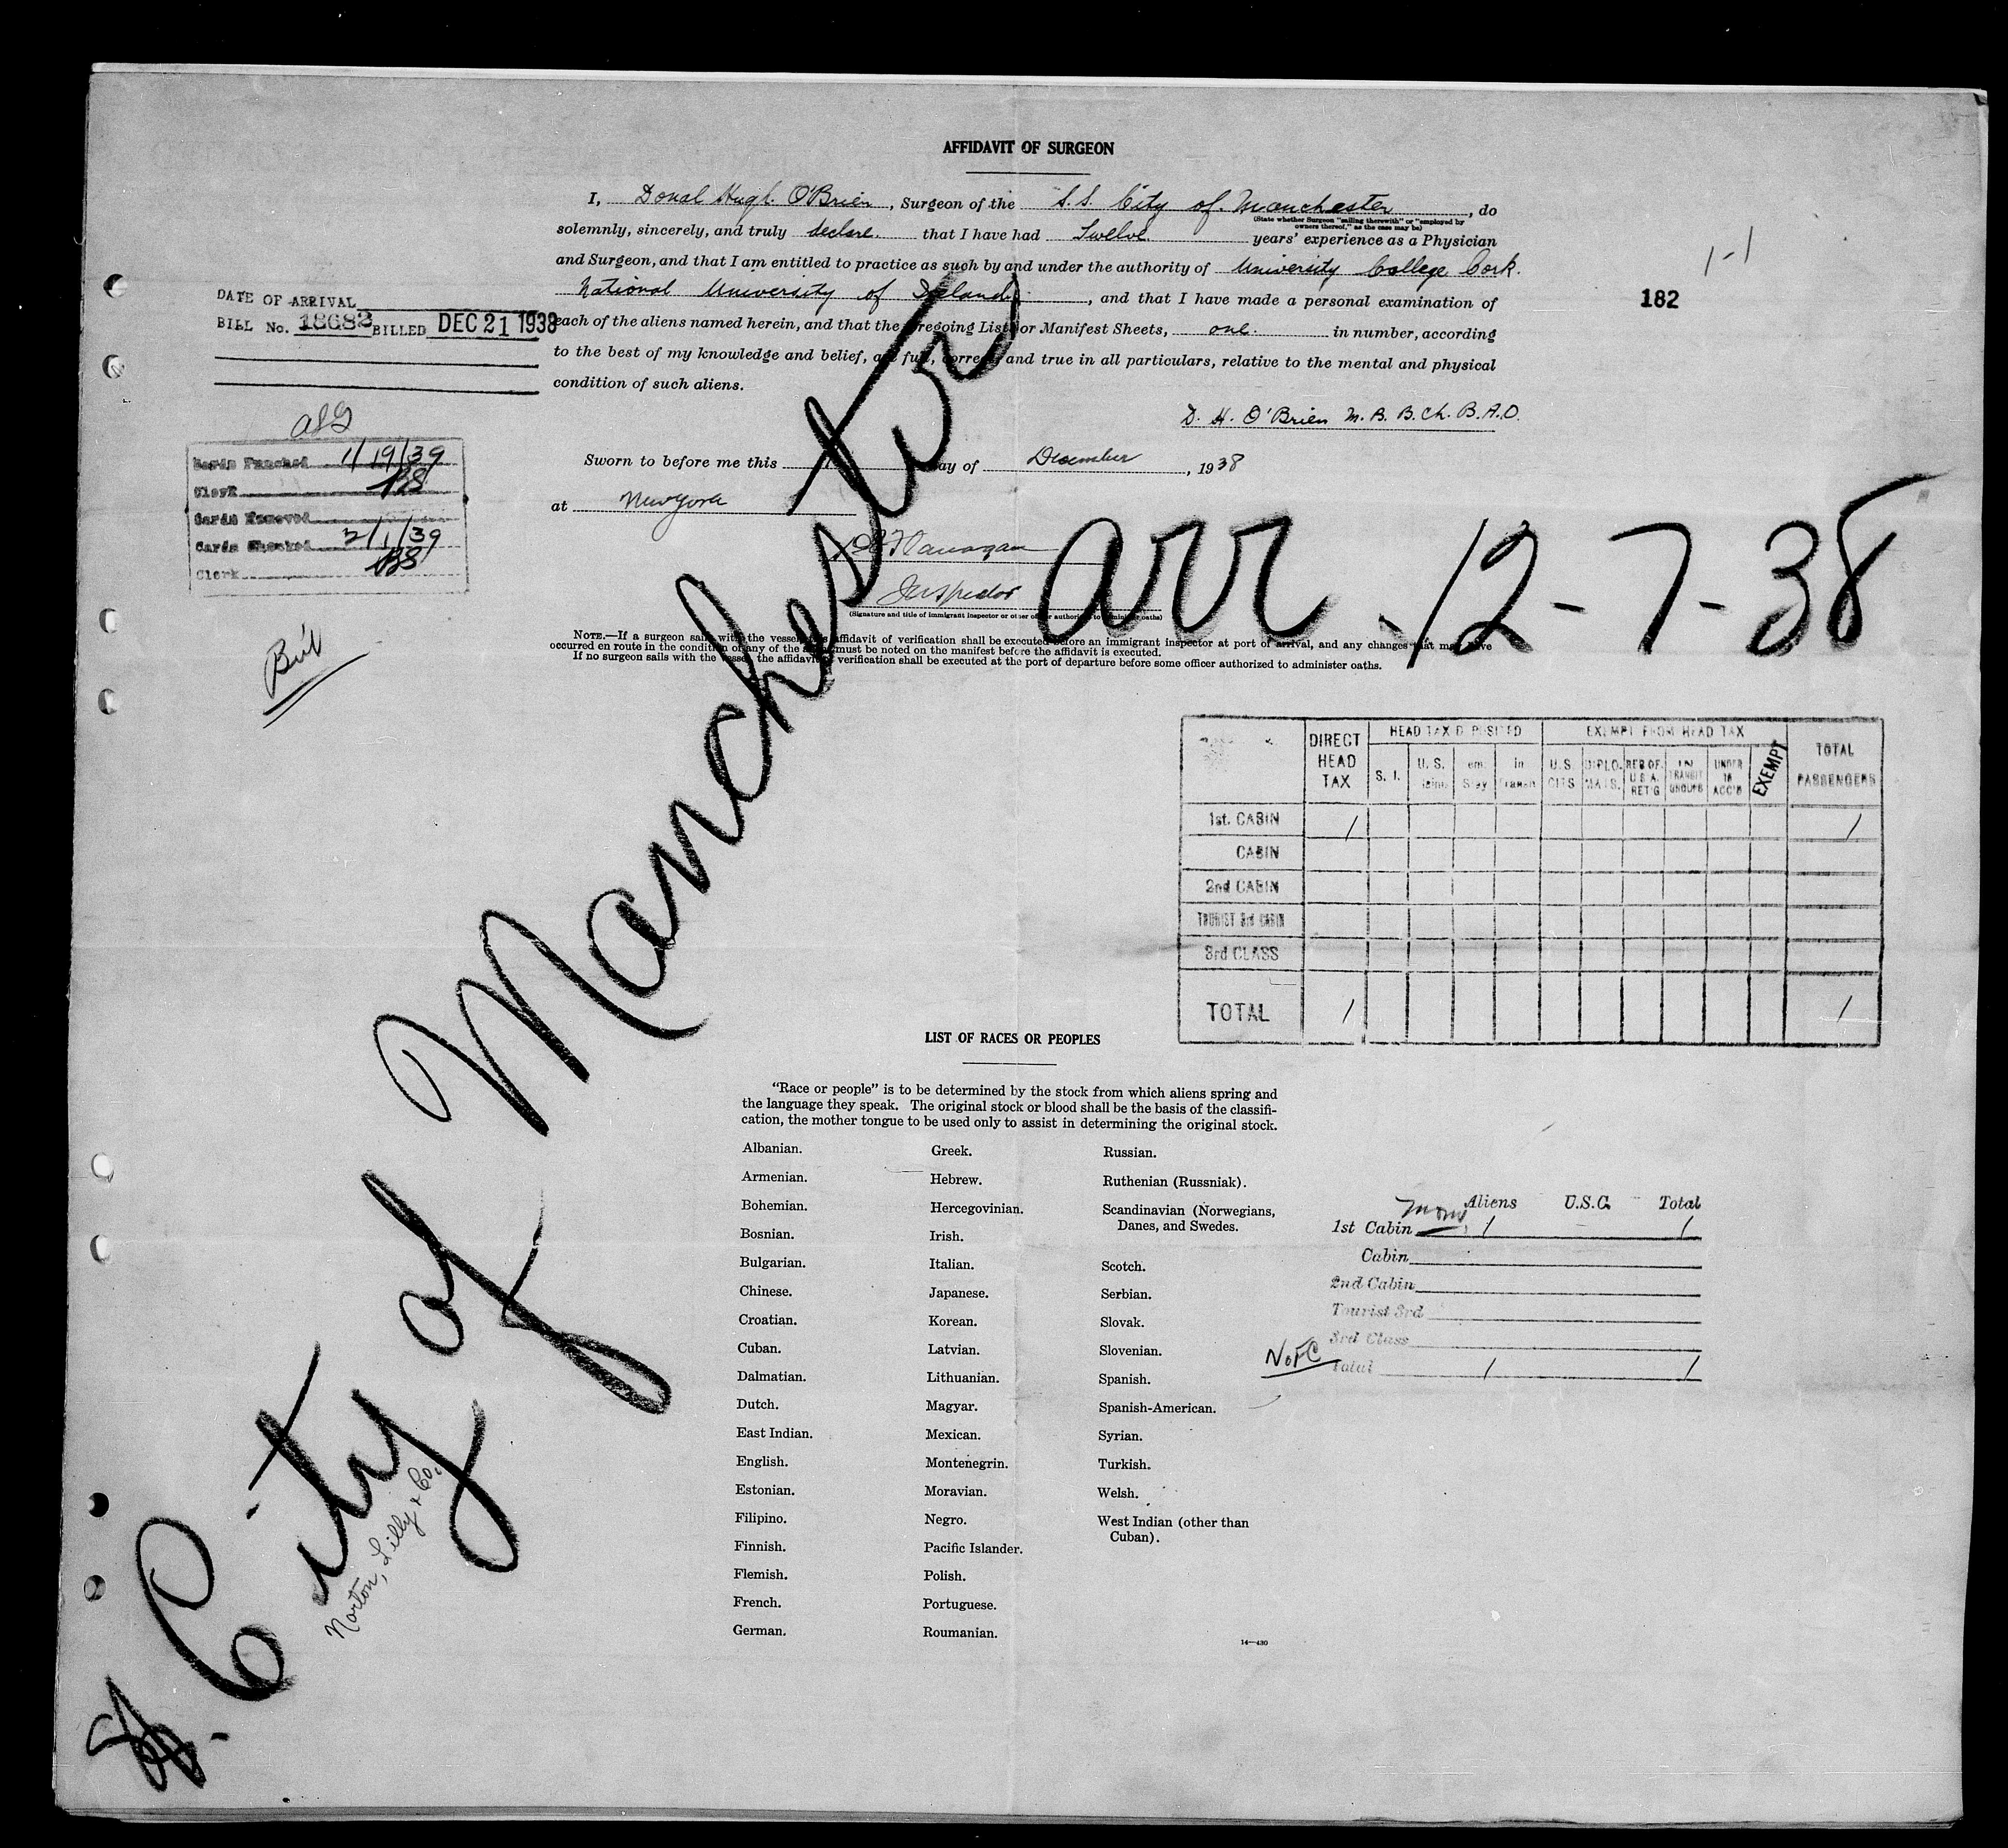 AFFIDAVIT OF SURGEON
I, Donal Hugh O'Brien, Surgeon of the S.S. City of Manchester, do
(State whether Surgeon "sailing therewith" or "employed by owners thereof," as the case may be)
solemnly, sincerely, and truly declare that I have had Twelve years' experience as a Physician
and Surgeon, and that I am entitled to practice as such by and under the authority of University College Cork.
National University of Ireland, and that I have made a personal examination of
each of the aliens named herein, and that the foregoing List or Manifest Sheets, one in number, according
to the best of my knowledge and belief, are full, correct, and true in all particulars, relative to the mental and physical
condition of such aliens.
D. H. O'Brien M.B. B.Ch. B.A.O.
Sworn to before me this day of December, 1938
at New York
Flanagan
Inspector
(Signature and title of immigrant inspector or other officer authorized to administer oaths)
NOTE.—If a surgeon sails with the vessel, this affidavit of verification shall be executed before an immigrant inspector at port of arrival, and any changes that may have
occurred en route in the condition of any of the aliens must be noted on the manifest before the affidavit is executed.
If no surgeon sails with the vessel, the affidavit of verification shall be executed at the port of departure before some officer authorized to administer oaths.
1-1
182
DATE OF ARRIVAL
BILL No. 18682 BILLED DEC 21 1938
Cards Punched 1/19/39
Clerk
Cards Removed
Cards Checked 2/1/39
Clerk
SS. City of Manchester
Norton, Lilly & Co.
arr. 12-7-38
DIRECT HEAD TAX
HEAD TAX DEPOSITED
EXEMPT FROM HEAD TAX
TOTAL PASSENGERS
S. I.
U. S.
in Transit
U.S. CITS
DIPLOMATS.
RES OF. U.S.A. RET'G
IN TRANSIT GROUPS
UNDER 16 ACC'D
EXEMPT
1st. CABIN 1 1
CABIN
2nd CABIN
TOURIST 3rd CABIN
3rd CLASS
TOTAL 1 1
LIST OF RACES OR PEOPLES
"Race or people" is to be determined by the stock from which aliens spring and
the language they speak. The original stock or blood shall be the basis of the classifi-
cation, the mother tongue to be used only to assist in determining the original stock.
Albanian.
Armenian.
Bohemian.
Bosnian.
Bulgarian.
Chinese.
Croatian.
Cuban.
Dalmatian.
Dutch.
East Indian.
English.
Estonian.
Filipino.
Finnish.
Flemish.
French.
German.
Greek.
Hebrew.
Hercegovinian.
Irish.
Italian.
Japanese.
Korean.
Latvian.
Lithuanian.
Magyar.
Mexican.
Montenegrin.
Moravian.
Negro.
Pacific Islander.
Polish.
Portuguese.
Roumanian.
Russian.
Ruthenian (Russniak).
Scandinavian (Norwegians,
Danes, and Swedes.
Scotch.
Serbian.
Slovak.
Slovenian.
Spanish.
Spanish-American.
Syrian.
Turkish.
Welsh.
West Indian (other than
Cuban).
Aliens U.S.C. Total
1st Cabin 1 - 1
Cabin
2nd Cabin
Tourist 3rd
3rd Class
Total 1 1
14—430